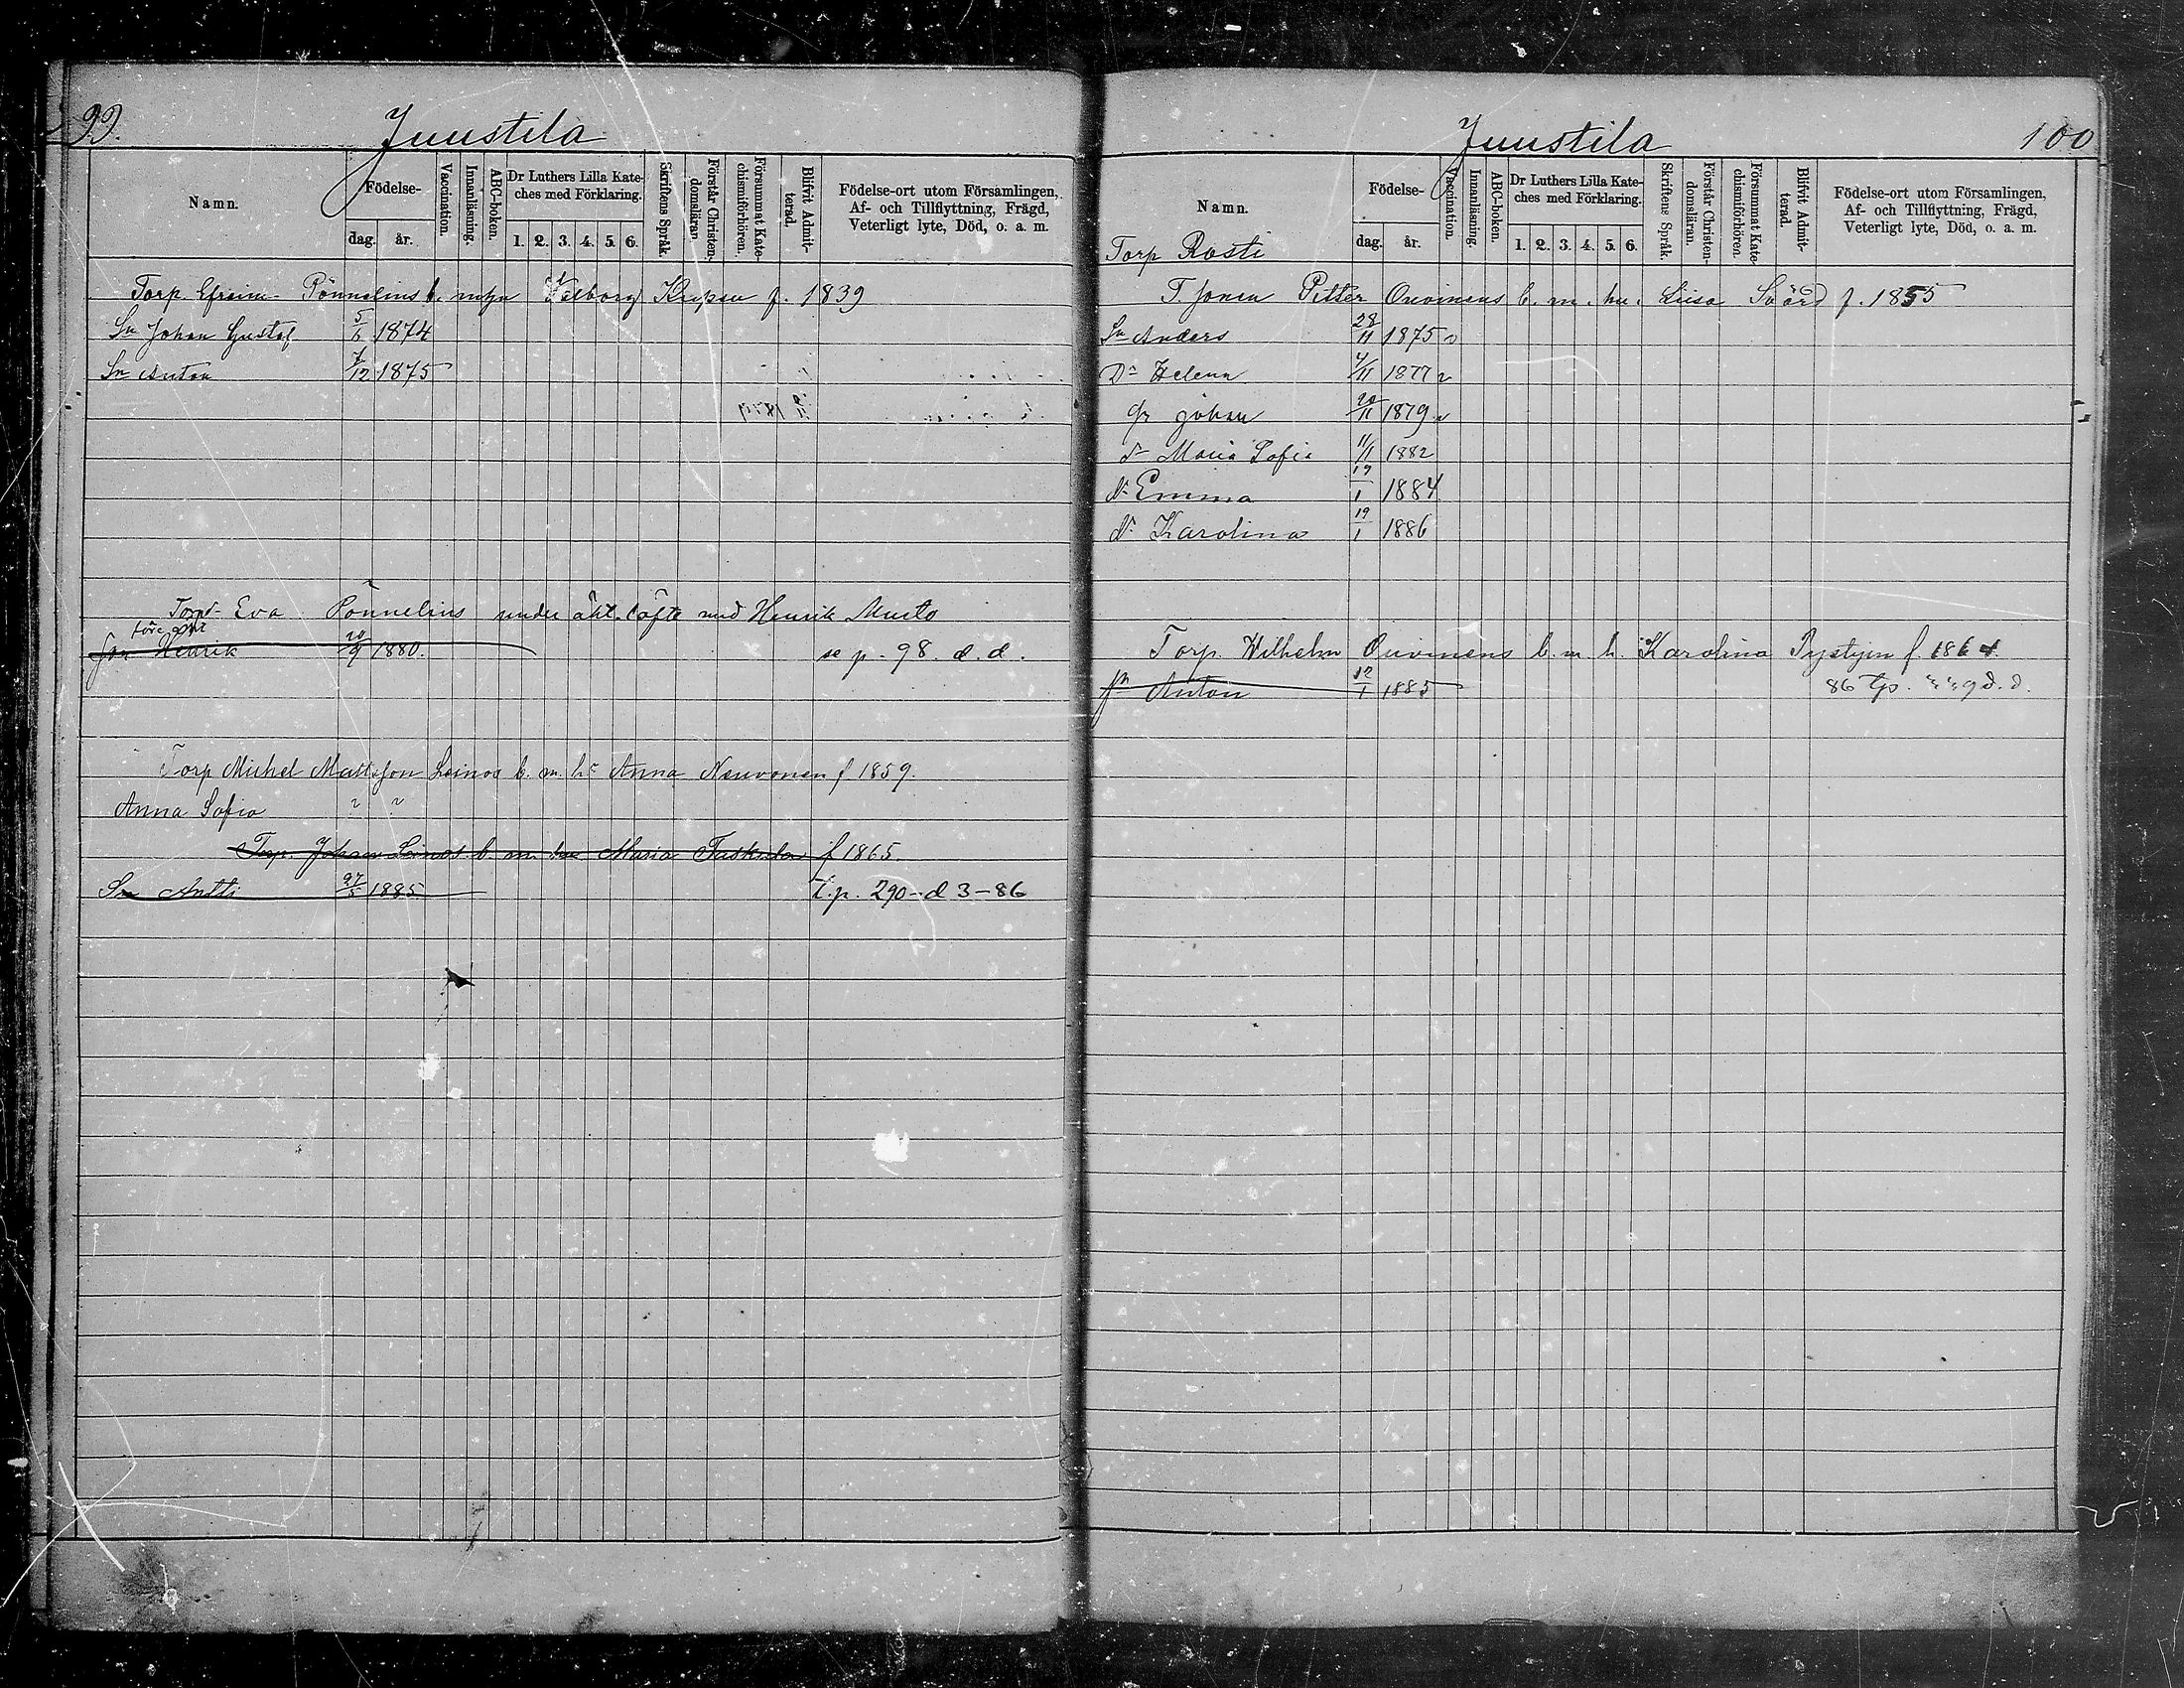 99.
Juustila
Namn.
Födelse-
dag.
år.
Vaccination.
Innanläsning.
ABC-boken.
Dr Luthers Lilla Kate-
ches med Förklaring.
1. 2. 3. 4. 5. 6.
Skriftens Språk.
Förstår Christen-
domsläran.
Försummat Kate-
chismiförhören.
Blifvit Admit-
terad.
Födelse-ort utom Församlingen,
Af- och Tillflyttning, Frägd,
Veterligt lyte, Död, o. a. m.
Torp. Efraim Pönnelins b. m. f. 1839
Sn Johan Gustaf 5/6 1874
Sn Anton 7/12 1875
Eva Pönnelins under äkt. löfte med Henrik Musto
före äkt
Sn Henrik 20/9 1880. se p. 98. d. d.
Torp Michel Mattsson Leinos b. m. h. Anna Neuvonen f 1859.
Anna Sofia
Torp. Johan Leinos b. m. hu Maria Taskula f 1865.
Sn Antti 27/5 1885 t. p. 290 - d 3-86
Juustila
100
Namn.
Födelse-
dag.
år.
Vaccination.
Innanläsning.
ABC-boken.
Dr Luthers Lilla Kate-
ches med Förklaring.
1. 2. 3. 4. 5. 6.
Skriftens Språk.
Förstår Christen-
domsläran.
Försummat Kate-
chismiförhören.
Blifvit Admit-
terad.
Födelse-ort utom Församlingen,
Af- och Tillflyttning, Frägd,
Veterligt lyte, Död, o. a. m.
Torp Rosti
Petter Ouvinens b. m. hu. Liisa Svärd f. 1855
Sn Anders 28/11 1875 v
Dr Helena 4/11 1877 v
Johan 20/11 1879 v
dr Maria Sofia 11/1 1882
dr Emma 19/1 1884
dr Karolina 19/1 1886
Torp. Wilhelm Ouvinens b. m. h. Karolina Pystynen f. 1864
Sn Anton 12/1 1885 86 d. d.